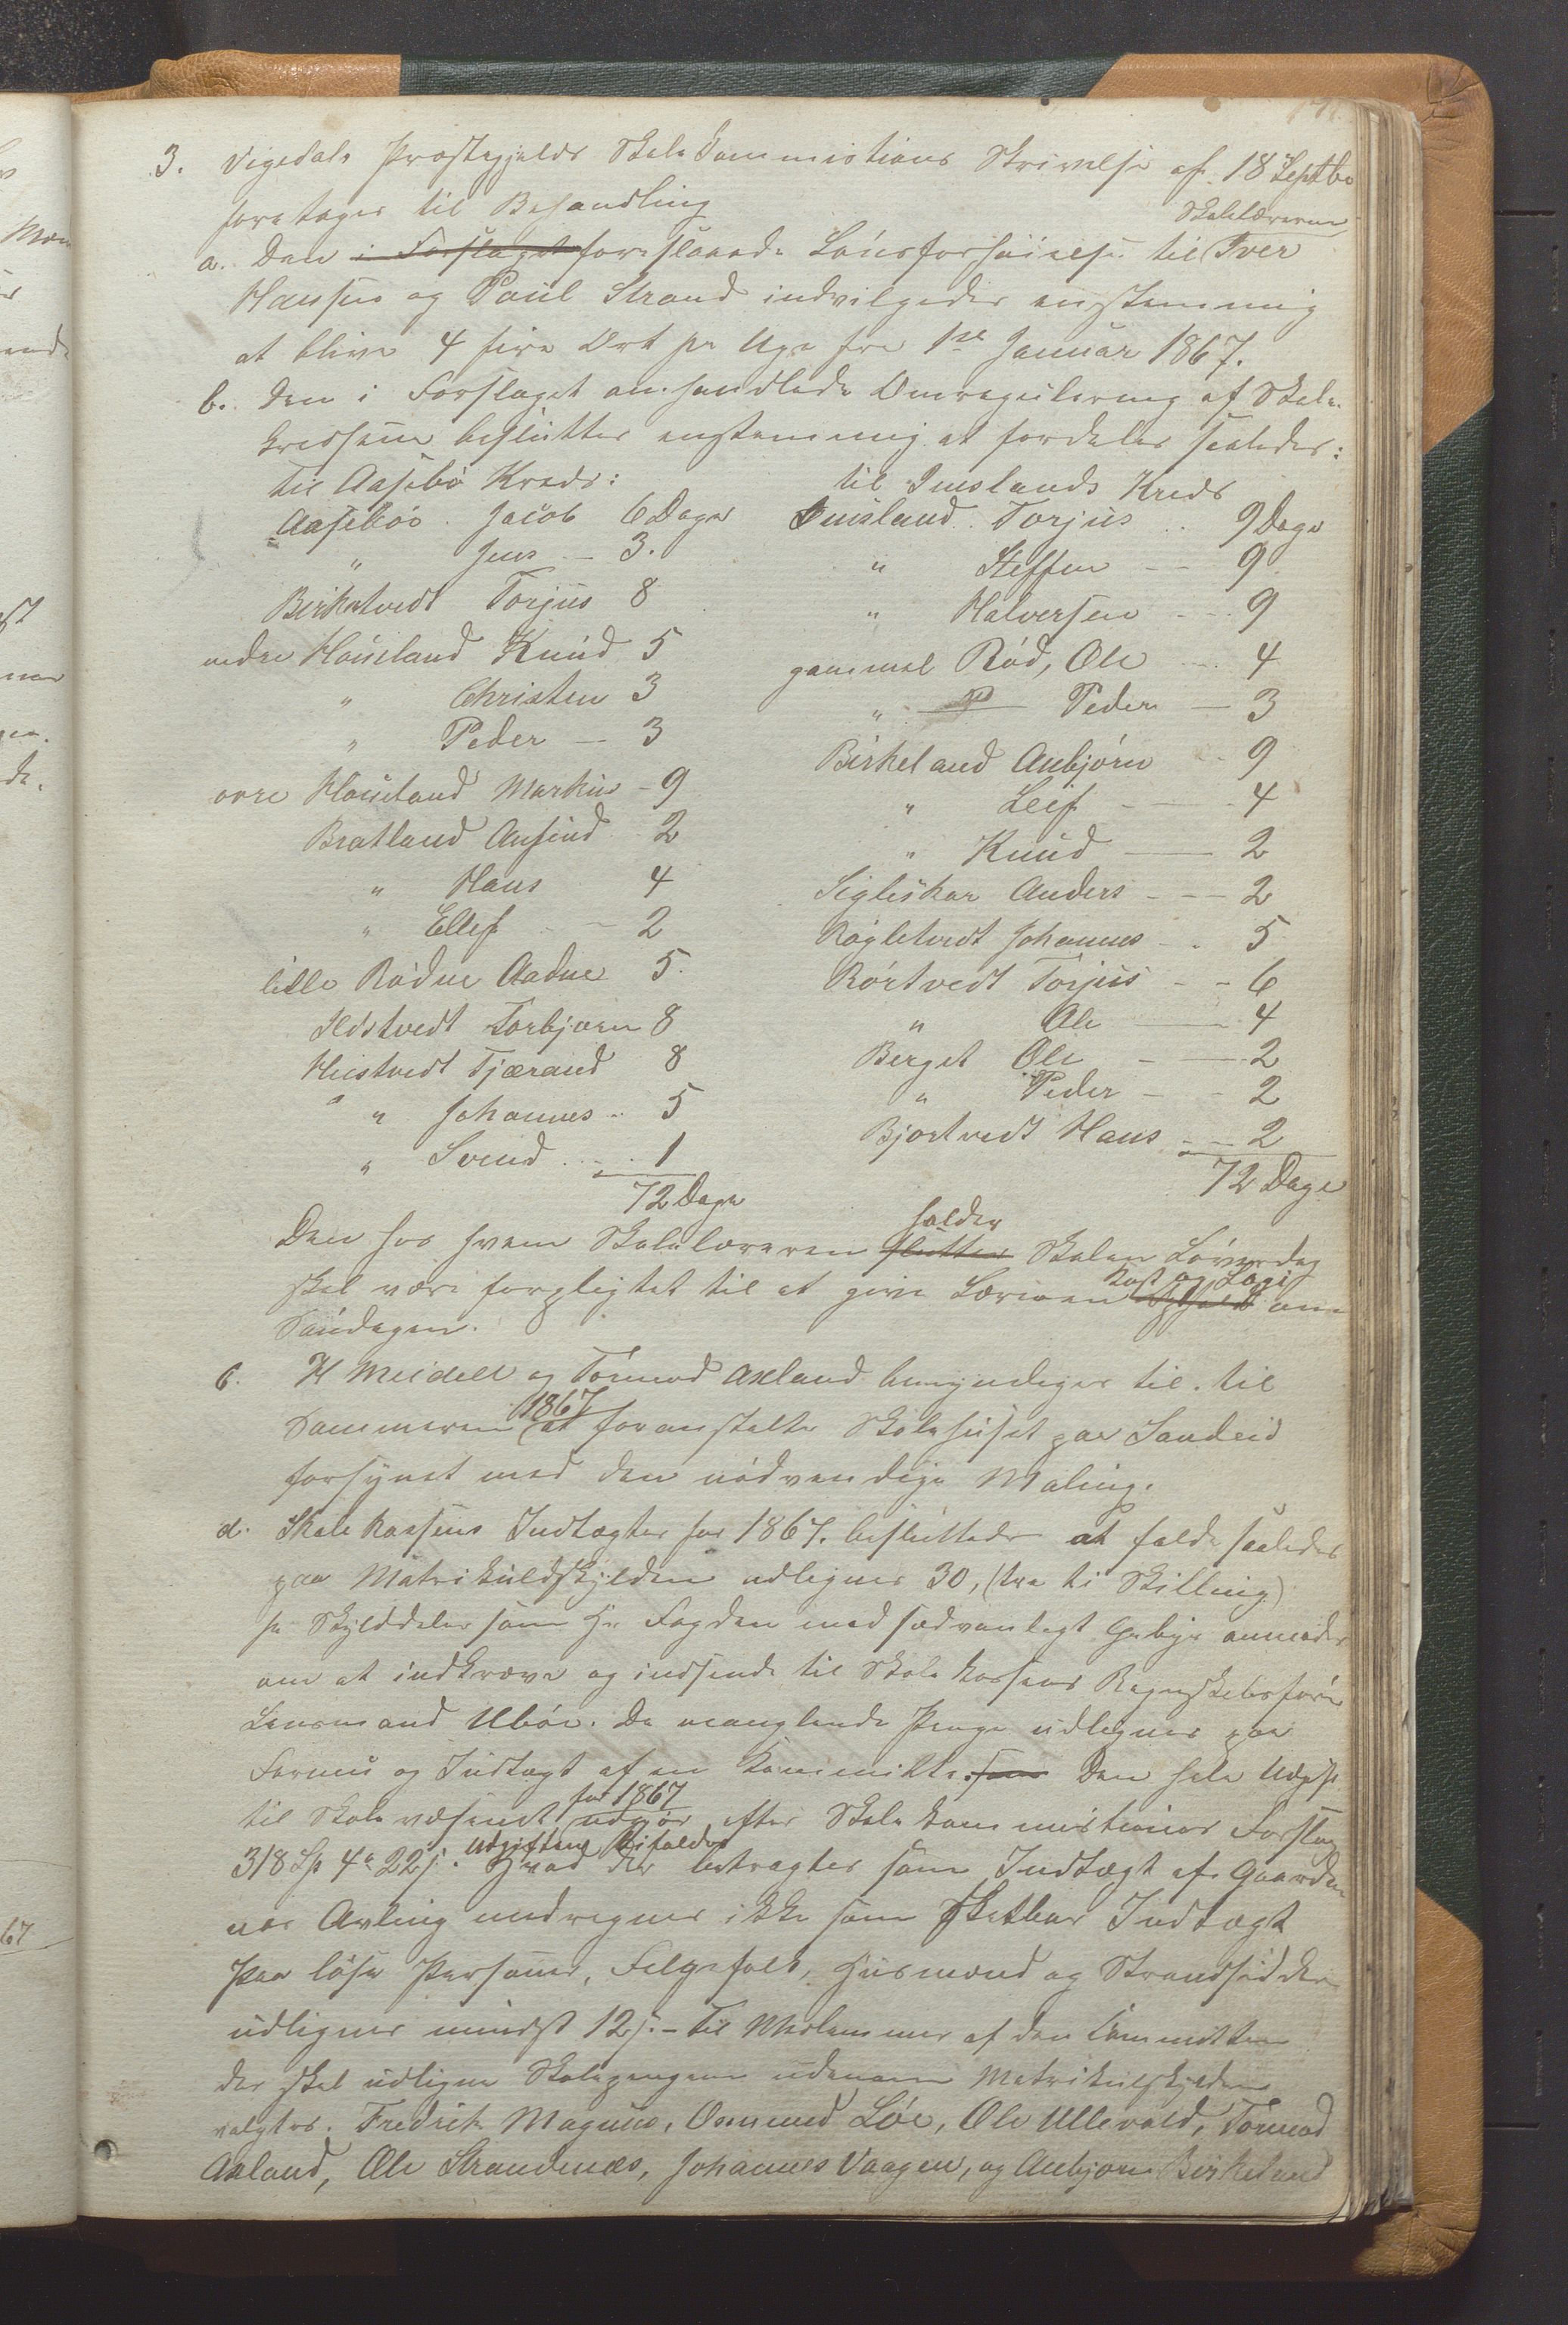 3. Vigedals Præstegjelds Skolekommistions Skrivelse af 18 Septbr
foretages til Behandling
Skolelærerne
a. Den i Forslaget foreslaaede Lönsforhöielse til Iver
Hansen og Paul Strand indvilgedes enstemmig
at blive 4 fire Ort pr Uge fra 1ste Januar 1867.
b. Den i Forslaget omhandlede Omregulering af Skole-
kredsene besluttes enstemmig at fordeles saaledes:
til Aasebö Kreds:
Aaseböe Jacob 6 Dage
" Jens - 3.
Birketvedt Torjus 8
nedre Houeland Knud 5
" Christen 3
" Peder - 3
övre Houeland Markus - 9
Bratland Ansund 2
" Hans 4
" Ellef - 2
lille Rödne Aadne 5.
Ilstvedt Torbjörn 8
Hiestvedt Tjærand 8
" Johannes - 5
" Svend - 1
72 Dage
til Imslands Kreds
Imsland Torjus 9 Dage
" Steffen - 9
" Halversen - 9
gammel Röd, Ole - 4
" P Peder - 3
Birkeland Anbjörn - 9
" Leif - 4
" Knud - 2
Sigleskar Anders - 2
Rögletvedt Johannes - 5
Rörtvedt Torjus - 6
" Ole - 4
Berget Ole - 2
" Peder - 2
Bjortvedt Hans - 2
72 Dage
holder
Den hos hvem Skolelæreren slutter Skolen Löverdag
Kost og Logi
skal være forpligtet til at give Læreren om
Söndagen.
c. H Meidell og Tormod Axland bemyndiges til. til
1867
Sommeren at foranstalte Skolehuset paa Sandeid
forsynet med den nödvendige Maling.
d. Skolekassens Indtægter for 1867. besluttedes at falde saaledes
paa Matrikuldskylden udlignes 30, (tre ti Skilling)
pr Skylddaler som Hr Fogden med sædvanlegt Gebyr anmodes
om at indkræve og indsende til Skolekassens Regnskabsförer
Lensmand Uböe. De manglende Penge udlignes paa
Formue og Indtægt af en Kommitte. som Den hele Udgift
for 1867
til Skolevæsenet udgjör efter Skolekommistionens Forslag
Udgiftens bifaldes
318 Sp 4 o 22 s. Hvad der betragtes som Indtægt af Gaarde-
nes Avling medregnes ikke som skatbar Indtægt
Paa löse Personer, Folgefolk, Husmænd og Strandsiddere
udlignes mindst 12 s. - Til Medlemmer af den Committee
der skal udligne Skolepengene udenom Matrikulskylden
valgtes. Fredrik Magnus, Osmund Löe, Ole Ullevold, Tormod
Axland, Ole Strandenæs, Johannes Vaagen, og Anbjörn Birkeland